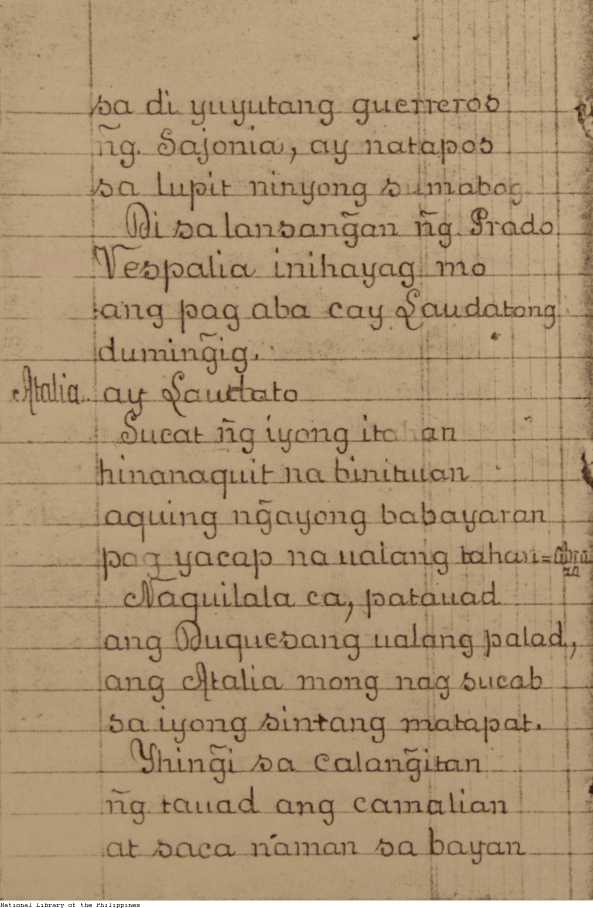 sa di yuyutang guerreros
ñg. Sajonia, ay natapos
sa lupit ninyong sumabog
Di sa lansang̃an ñg. Prado
Vespalia inihayag mo
ang pag aba cay Laudatong
duming̃ig.
Atalia.. ay Laudato
Sucat ñg iyong an
hinanaquit na binituan
aquing ng̃ayong babayaran
pag yacap na ualang tahan=
Naquilala ca, patauad
ang Duquesang ualang palad,
ang Atalia mong nag sucab
sa iyong sintang matapat.
Yhing̃i sa calang̃itan
ñg tauad ang camalian
at saca n̄aman sa bayan
National Library of the Philippines